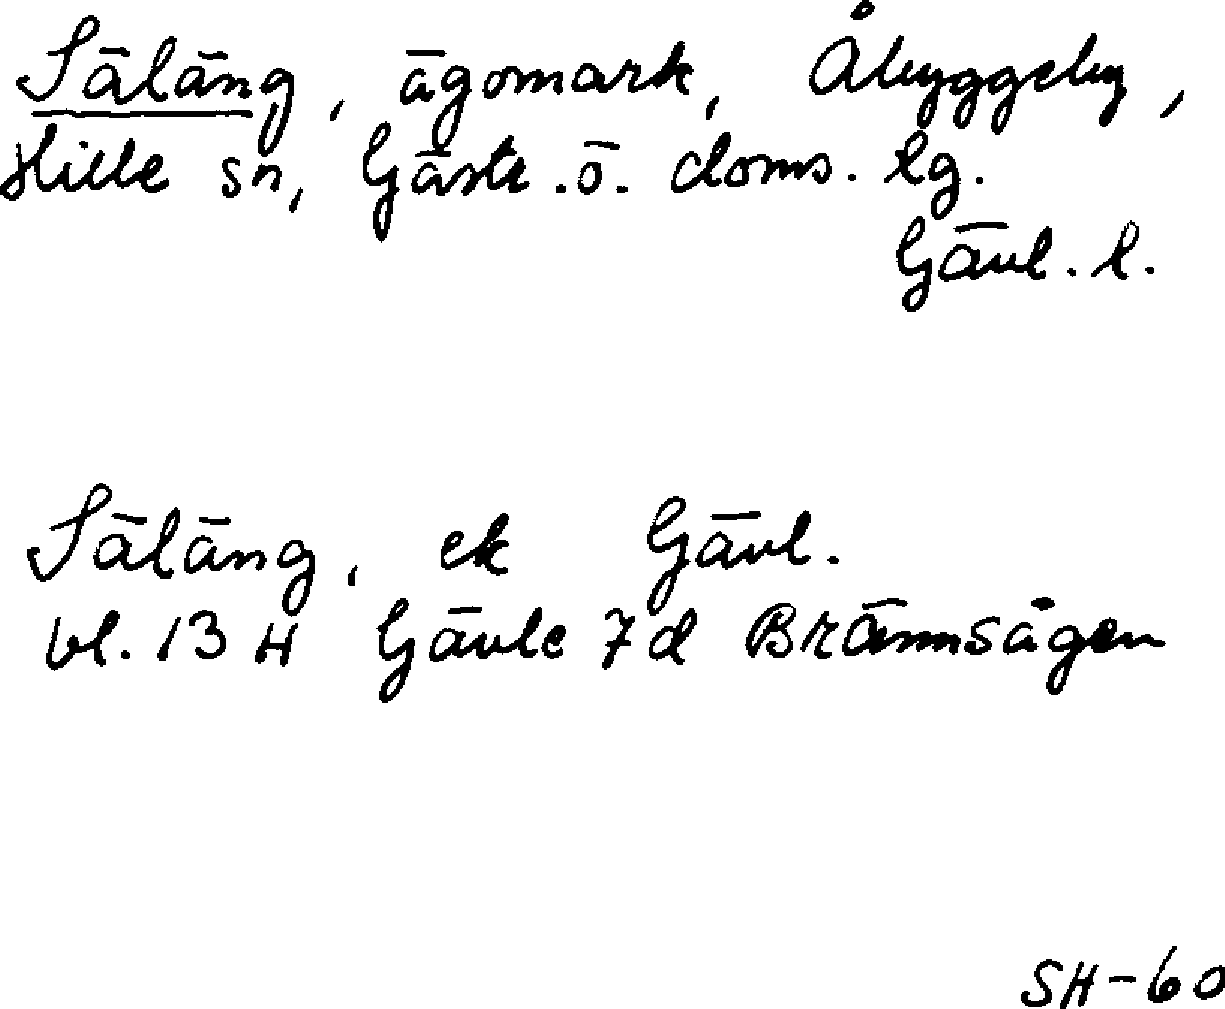 Säläng, ägomark, Åbyggeby,
Hille sn, Gästr.ö. doms. lg.
Gävl. l.
Säläng, ek Gävl.
bl. 13 H Gävle 7d Brännsågen
SH-60